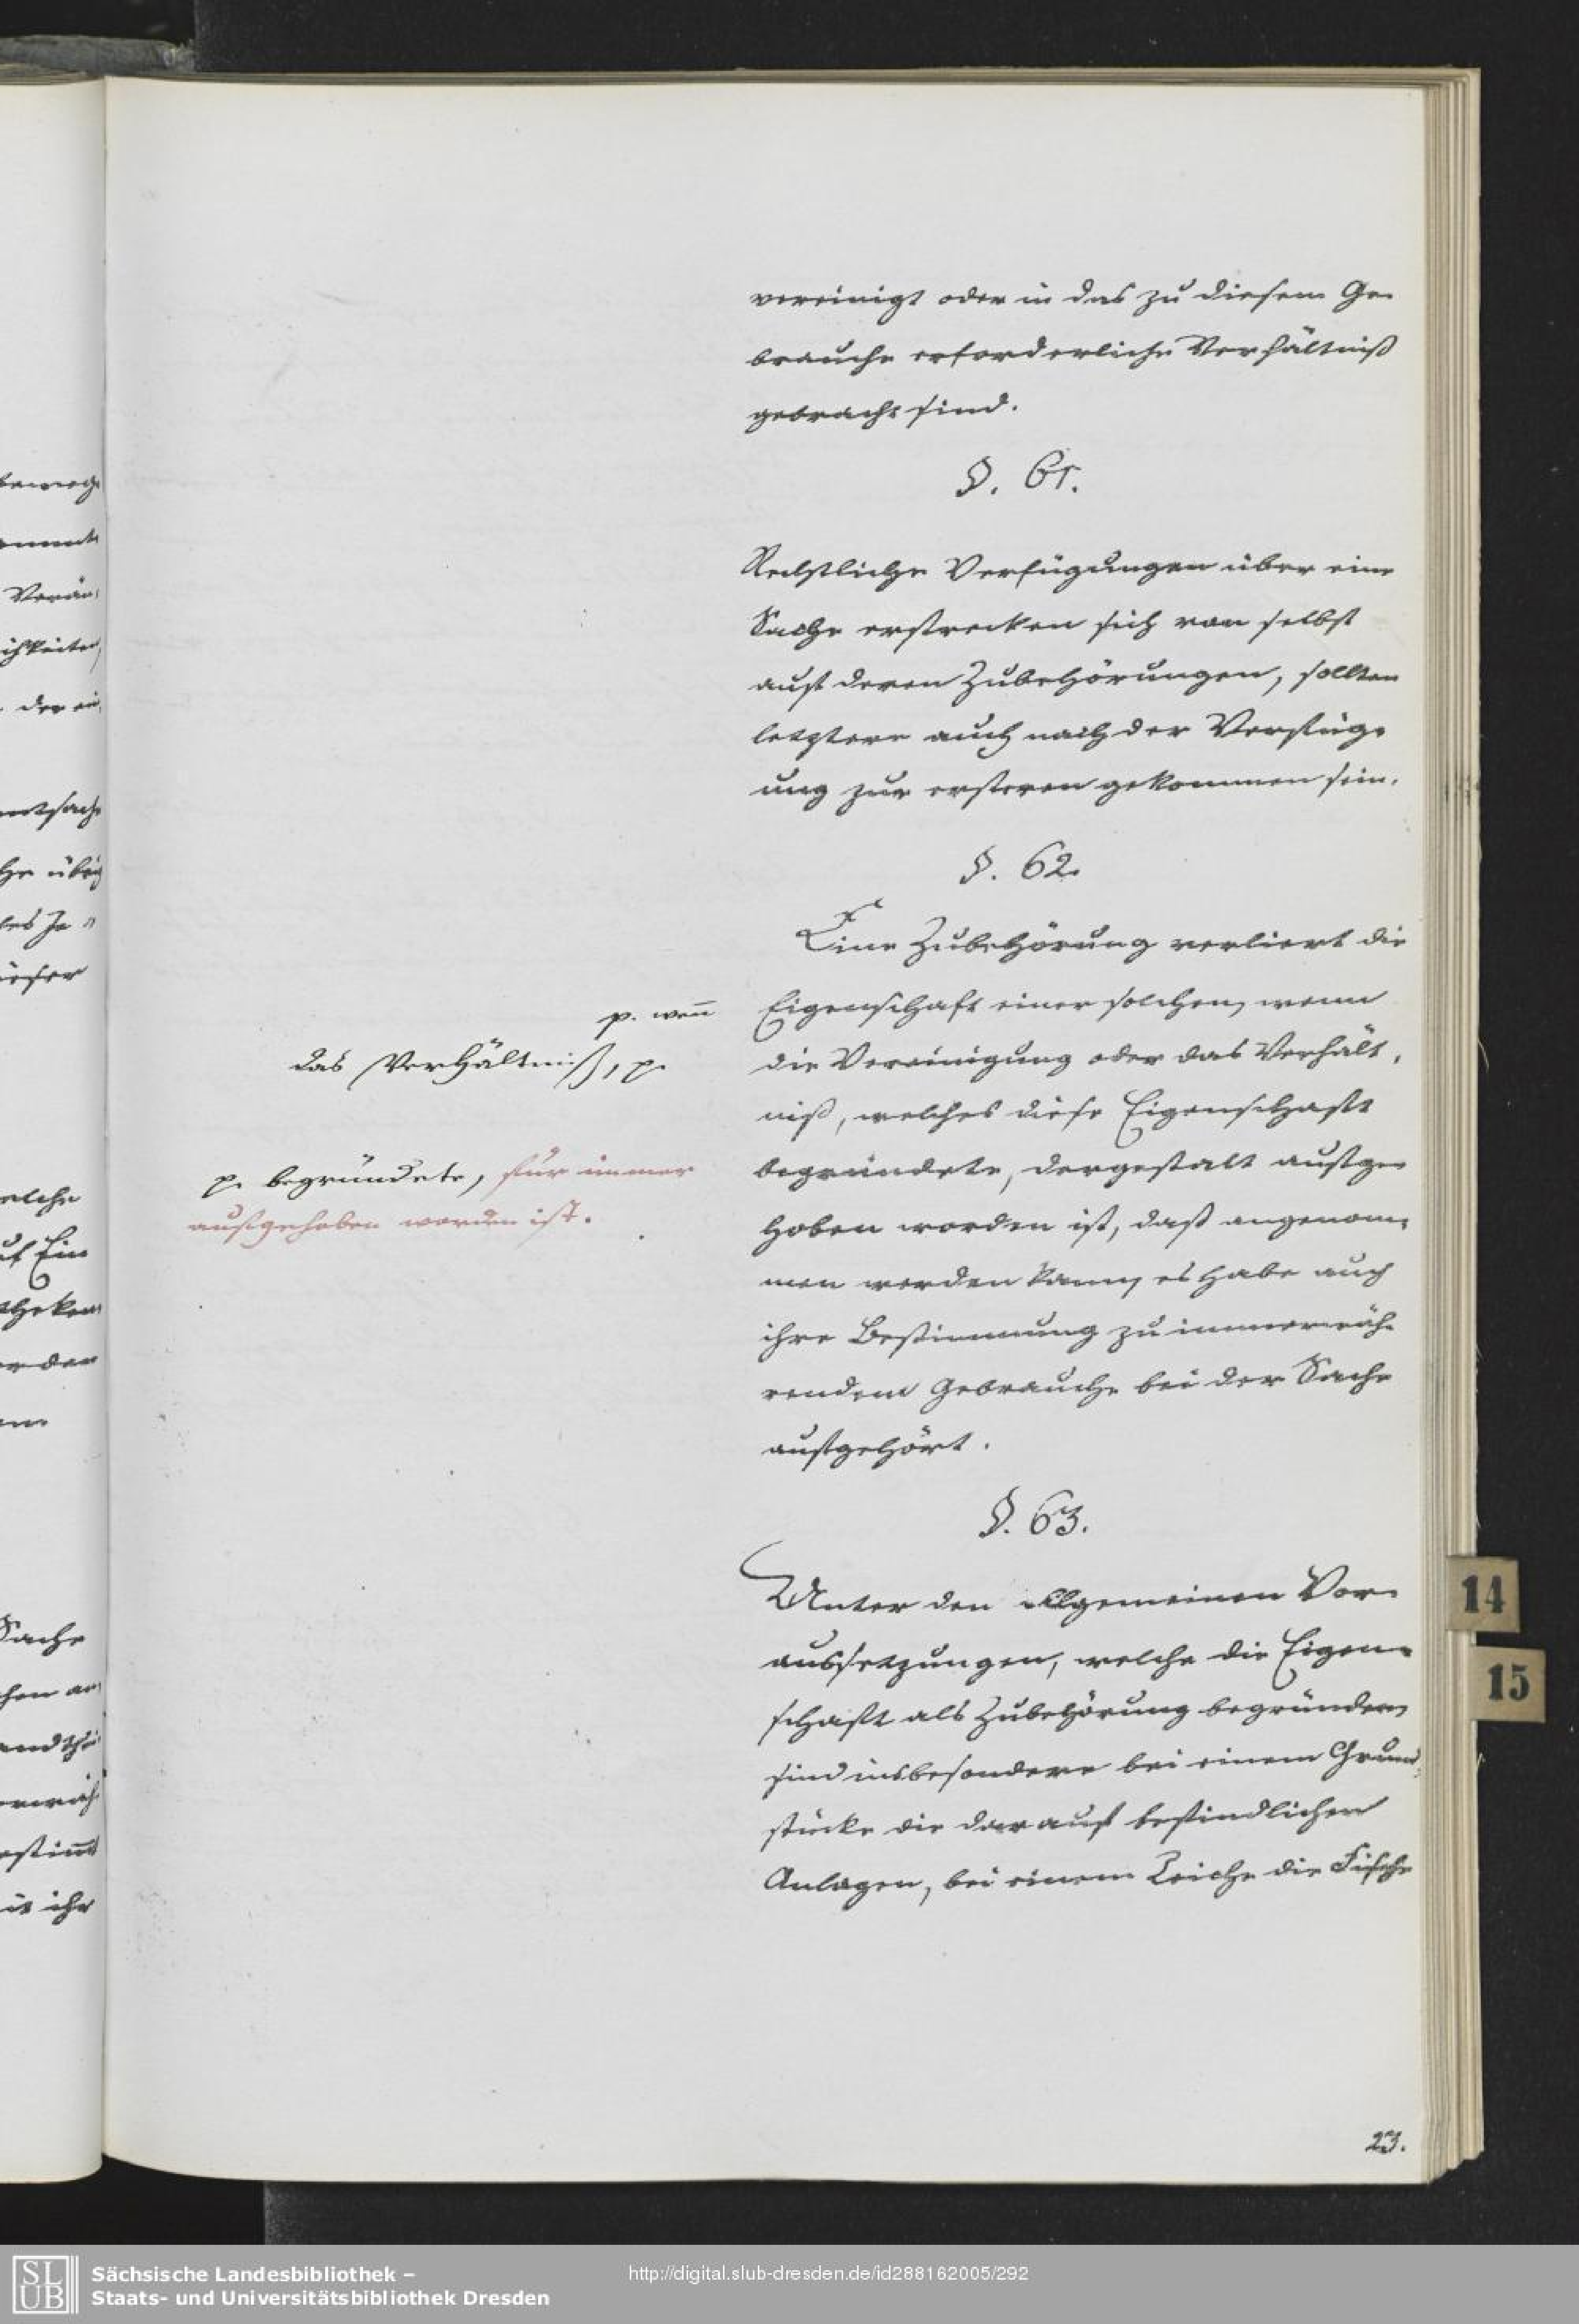 vereinigt oder in das zu diesem Ge-
brauche erforderliche Verhältniß
gebracht sind.
§. 61.
Rechtliche Verfügungen über eine
Sache erstrecken sich von selbst
auf deren Zubehörungen, sollten
letztere auch nach der Verfüg-
ung zur ersteren gekommen sein.
§. 62.
Eine Zubehörung verliert die
Eigenschaft einer solchen, wenn
die Vereinigung oder das Verhält-
niß, welches diese Eigenschaft
begründete, dergestalt aufge-
hoben worden ist, daß angenom-
men werden kann, es habe auch
ihre Bestimmung zu immerwäh-
rendem Gebrauche bei der Sache
aufgehört.
p. wenn̄
das Verhältniß, p.
p. begründete, für immer
aufgehoben worden ist.
§. 63.
Unter den allgemeinen Vor-
aussetzungen, welche die Eigen-
schaft als Zubehörung begründen,
sind insbesondere bei einem Grund-
stücke die darauf befindlichen
Anlagen, bei einem Teiche die Fische
23.
14
15
welche
Sache
SLUB
Sächsische Landesbibliothek –
Staats- und Universitätsbibliothek Dresden
http://digital.slub-dresden.de/id288162005/292